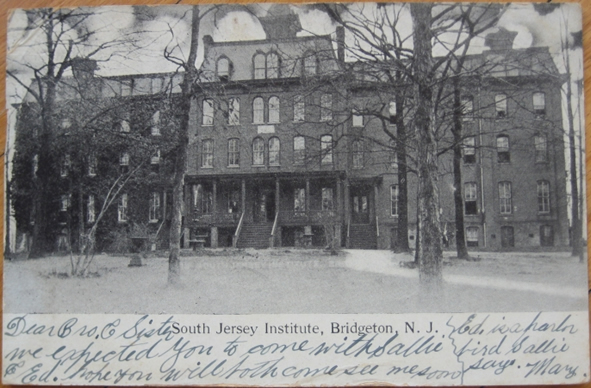 South Jersey Institute, Bridgeton, N. J.
Dear Bro, & Sister
we expected You to come with Sallie
& Ed. hope You will both come see me soon
Ed. is a
bird Sallie
say. Mary.